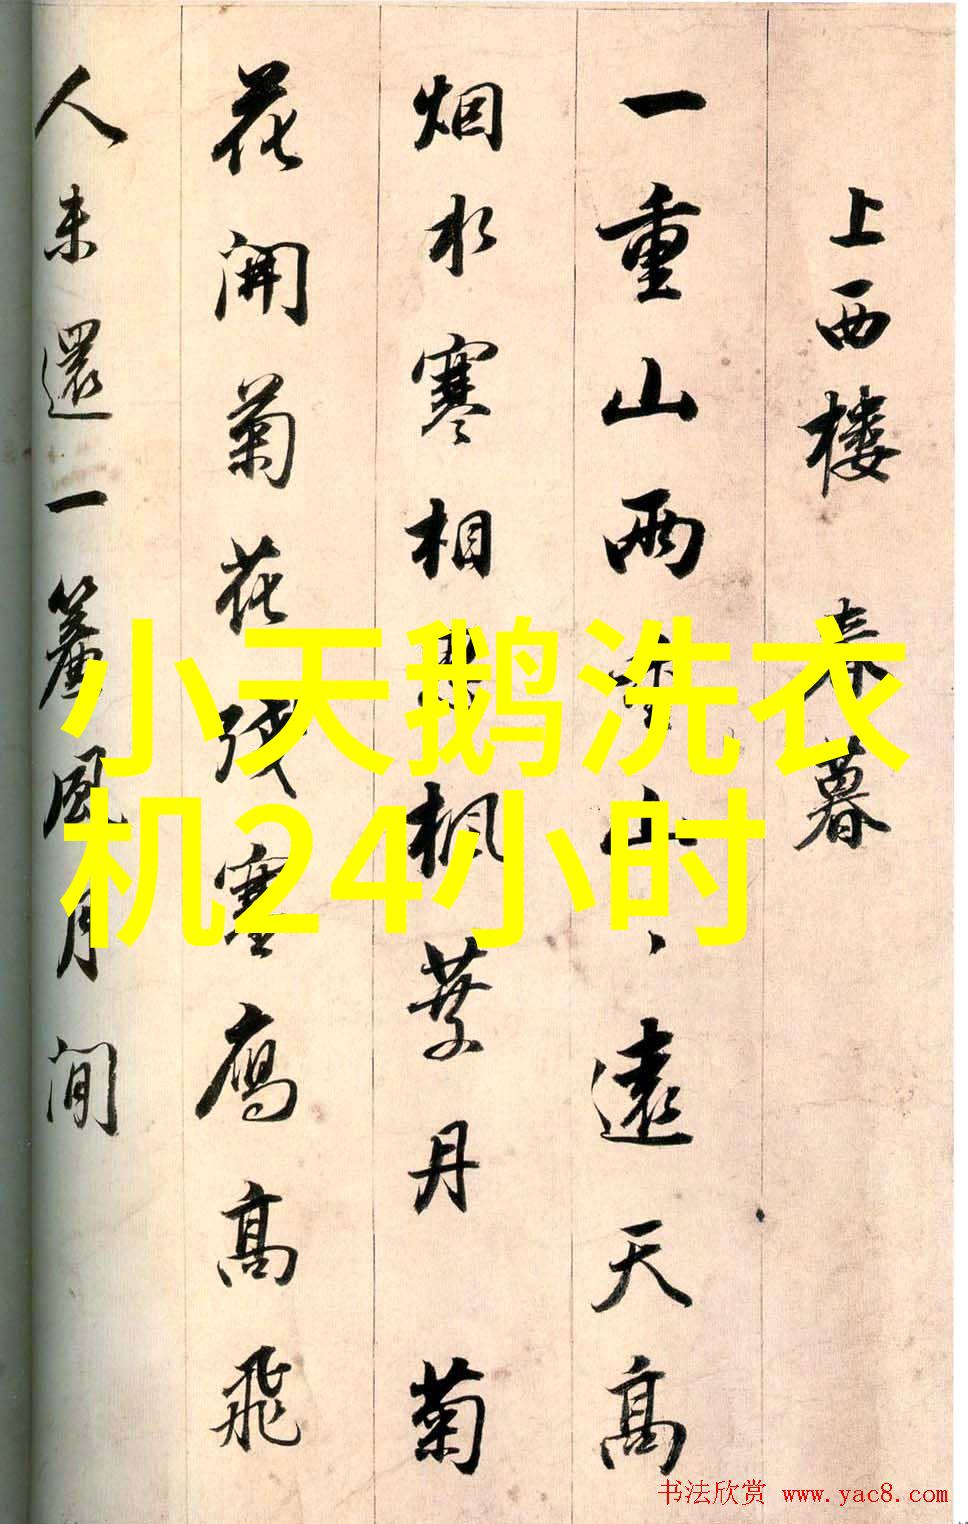 上西楼 暮
一重山兩重山、遠天高
烟水寒相思楓葉丹菊
花開菊花残塞鴈高飛
人未還一簾風月閒
小天鹅洗衣
机24小时
书法欣赏 www.yac8.com